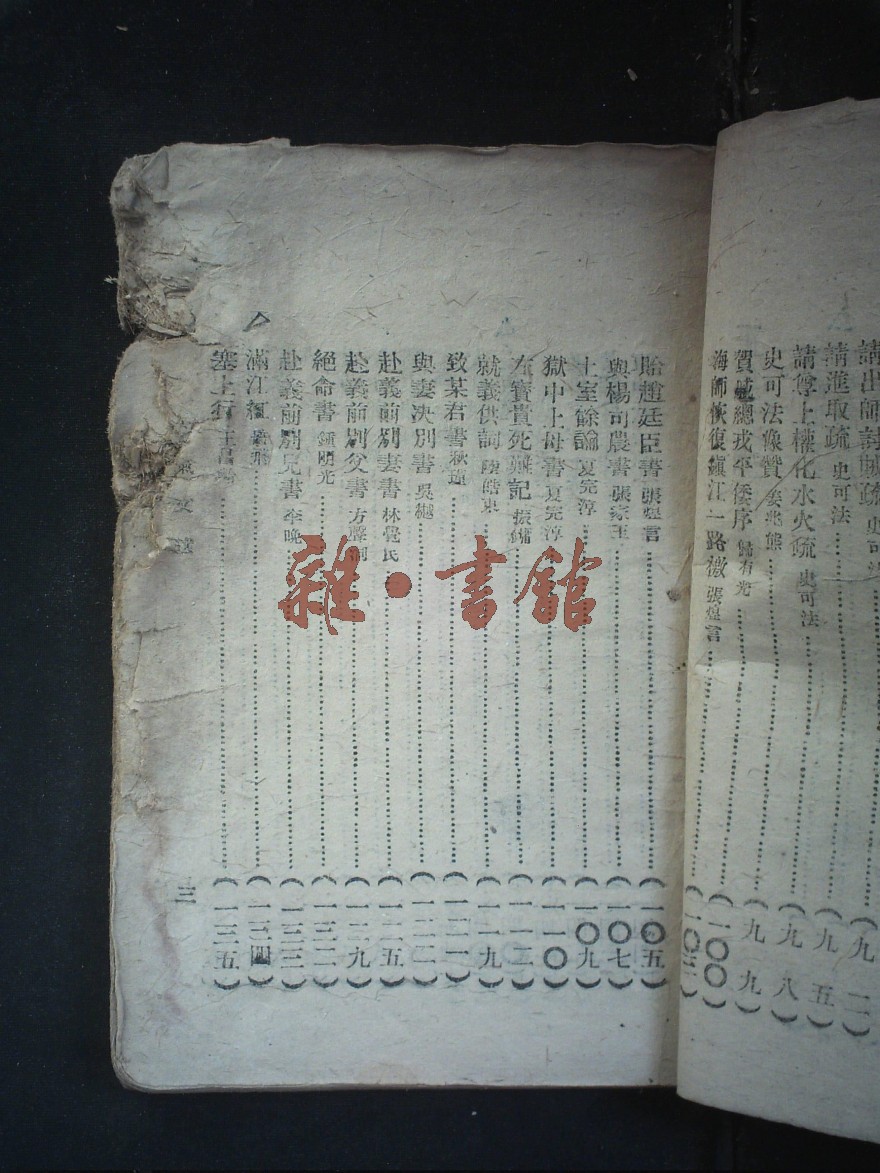 請出師討賊疏 史可法 (九二)
請進取疏 史可法 (九五)
請尊上權化水火疏 史可法 (九八)
史可法像贊 姜兆熊 (九九)
賀戚總戎平倭序 歸有光 (一〇〇)
海師恢復鎮江一路檄 張煌言
貽趙廷臣書 張煌言 (一〇五)
與楊司農書 張家玉 (一〇七)
土室餘論 夏完淳 (一〇九)
獄中上母書 夏完淳 (一一〇)
左寶貴死難記 (一一二)
就義供詞 陸皓東 (一一九)
致某君書 秋瑾 (一二一)
與妻決別書 吳樾 (一二二)
赴義前別妻書 林覺民 (一二五)
赴義前別父書 方聲洞 (一二九)
絕命書 鍾明光 (一三二)
赴義前別兄書 李晚 (一三三)
滿江紅 岳飛 (一三四)
塞上行 (一三五)
三
雜·書館